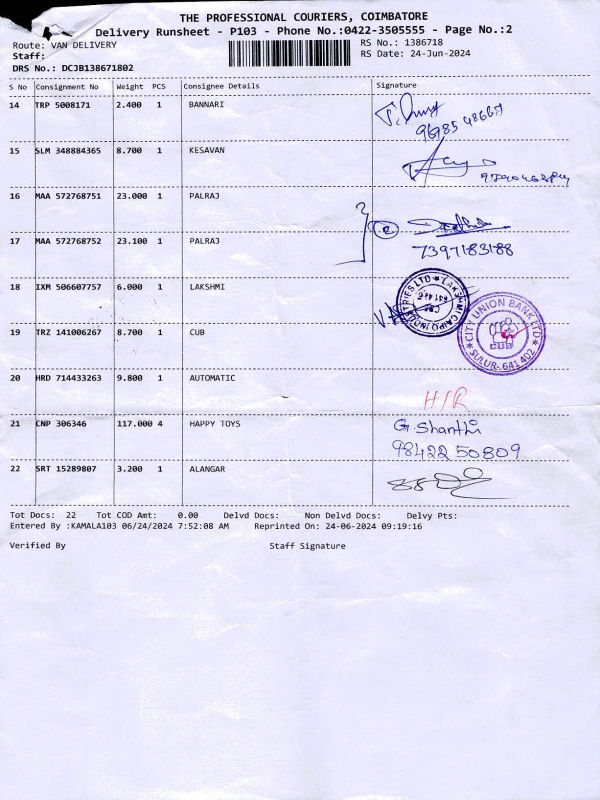 THE PROFESSIONAL COURIERS, COIMBATORE
Delivery Runsheet - P103 - Phone No.:0422-3505555 - Page No.:2
Route: VAN DELIVERY RS No.: 1386718
Staff: RS Date: 24-Jun-2024
DRS No.: DCJB138671802
S No Consignment No Weight PCS Consignee Details Signature
14 TRP 5008171 2.400 1 BANNARI
15 SLM 348884365 8.700 1 KESAVAN
16 MAA 572768751 23.000 1 PALRAJ
17 MAA 572768752 23.100 1 PALRAJ
7397183188
18 IXM 506607757 6.000 1 LAKSHMI
19 TRZ 141006267 8.700 1 CUB
CITY UNION BANK LTD
CUB
SULUR-641 402
20 HRD 714433263 9.800 1 AUTOMATIC
H/R
21 CNP 306346 117.000 4 HAPPY TOYS
G. Shanthi
98422 50809
22 SRT 15289807 3.200 1 ALANGAR
Tot Docs: 22 Tot COD Amt: 0.00 Delvd Docs: Non Delvd Docs: Delvy Pts:
Entered By :KAMALA103 06/24/2024 7:52:08 AM Reprinted On: 24-06-2024 09:19:16
Verified By Staff Signature